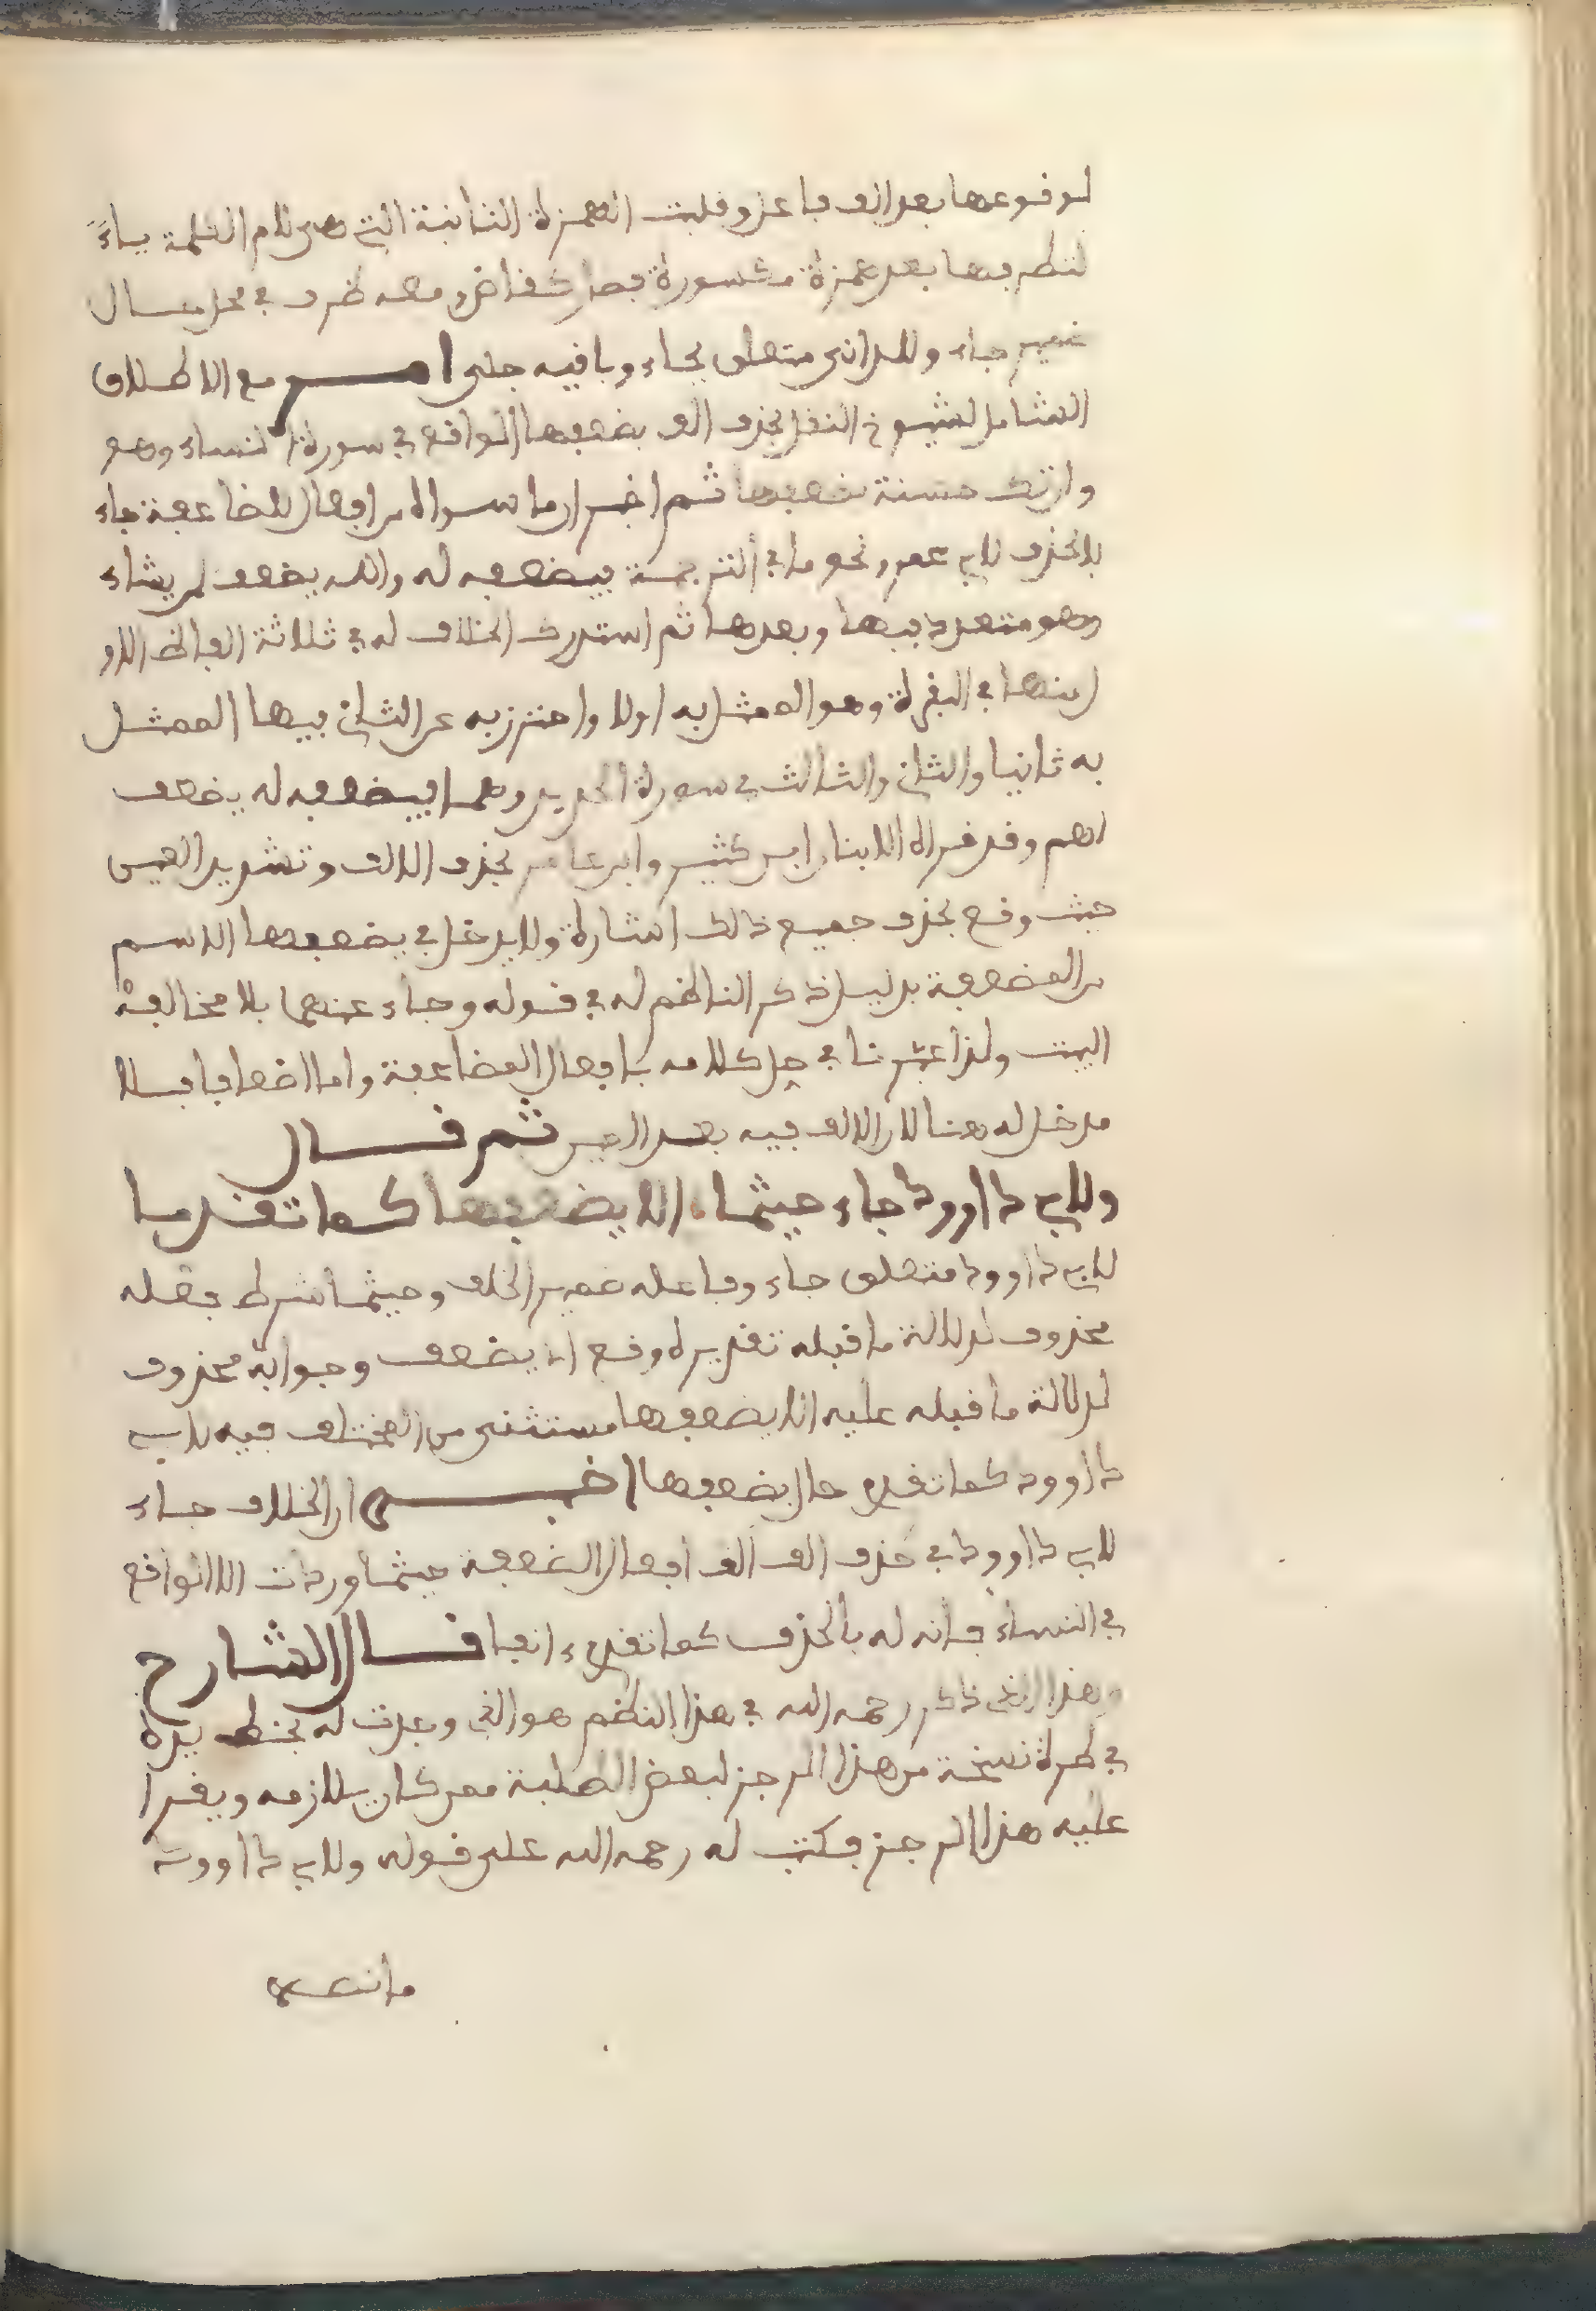 لوقوعها بعد الف فاعل وقلبت الهمزة الثانية التي هي لام الكلمة ياءً
لتطرفها بعد همزة مكسورة فصار كقاض ومعه ظرف في محل حال
ضمير جاء وللداني متعلق بجاء وباقيه جلي امر مع الاطلاق
الشامل لشيوخ النقل بحذف الف يضعفها الواقع في سورة النساء وهو
وان تك حسنة يضعفها ثم اخبر ان ما سواه من افعال المضاعفة جاء
بالحذف لابي عمرو نحو ما في الترجمة فيضعفه له والله يضعف لمن يشاء
وهو متعدد فيها وبعدها ثم استدرك الخلاف له في ثلاثة الفاظ الاو
ل منها في البقرة وهو الممثل به اولا واحترز به عن الثاني فيها الممثل
به ثانيا والثاني والثالث في سورة الحديد وهما فيضعفه له يضعف
لهم وقد قراه الابنان ابن كثير وابن عامر بحذف الالف وتشديد العين
حيث وقع بحذف جميع ذالك اشارة ولا يدخل في يضعفها الاسم
من المضعفة بدليل ذكر الناظم له في قوله وجاء عنهما بلا مخالفة
البيت ولذا عبرنا في حل كلامه بافعال المضاعفة واما اضعافا فلا
مدخل له هنا لان الالف فيه بعد العين ثم قال
ولابي داوود جاء حيثما الا يضعفها كما تقدما
لابي داوود متعلق جاء وفاعله ضمير الخلف وحيثما شرط فعله
محذوف لدلالة ما قبله تقديره وقع يضعف وجوابه محذوف
لدلالة ما قبله عليه الا يضعفها مستثنى من المختلف فيه لابي
داوود كما تقدم حال يضعفها اخبر ان الخلاف جاء
لابي داوود في حذف الف الف افعال المضعفة حيثما وردت الا الواقع
في النساء فانه له بالحذف كما تقدم ءانفا قال الشارح
وهذا الذي ذكر رحمه الله في هذا النظم هو الذي وجدت له بخط يده
في طرة نسخة من هذا الرجز لبعض الطلبة ممن كان يلازمه ويقرا
عليه هذا الرجز فكتب له رحمه الله على قوله ولابي داوود
ما نصه